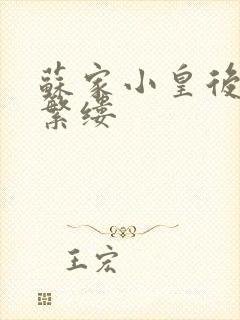 蘇家小皇後
繁縷
王宏